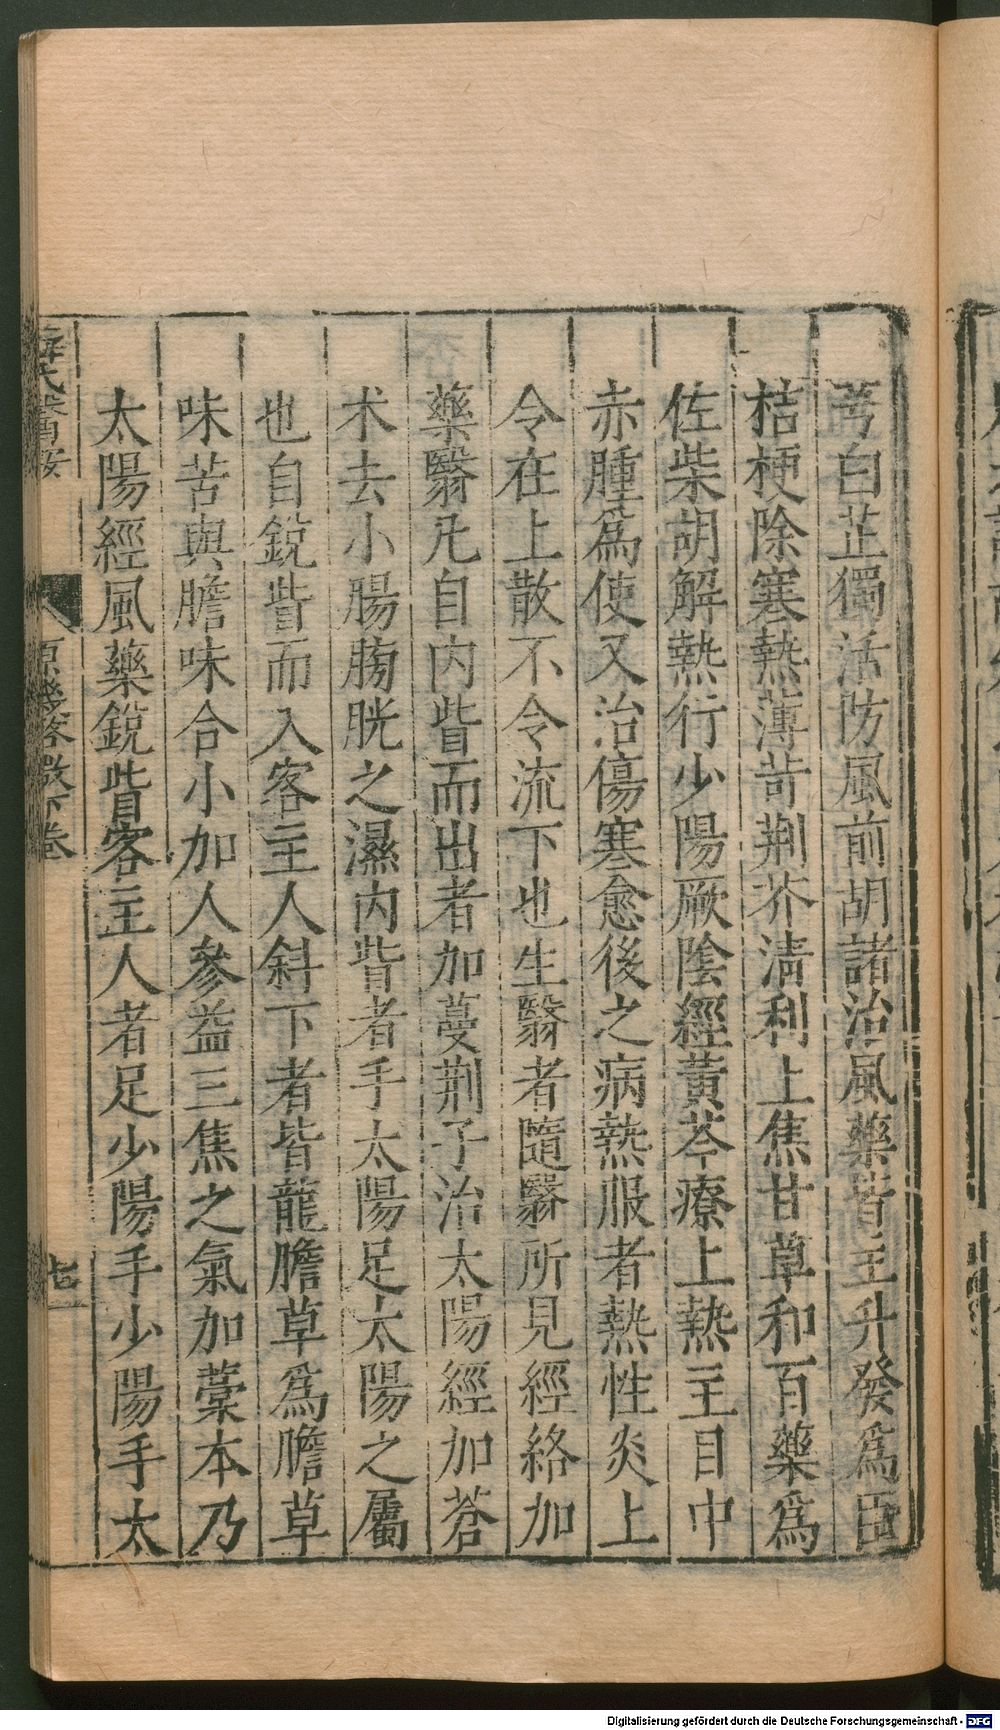 芎白芷獨活防風前胡諸治風藥皆主升發爲臣
桔梗除寒熱薄荷荆芥淸利上焦甘草和百藥爲
佐柴胡解熱行少陽厥陰經黃芩療上熱主目中
赤腫爲使又治傷寒愈後之病熱服者熱性炎上
令在上散不令流下也生翳者隨翳所見經絡加
藥翳凡自内眥而出者加蔓荆子治太陽經加蒼
术去小腸膀胱之濕内眥者手太陽足太陽之屬
也自銳眥而入客主人斜下者皆龍膽草爲膽草
味苦與膽味合小加人參益三焦之氣加藁本乃
太陽經風藥銳眥客主人者足少陽手少陽手太
薛氏醫按
原機啓微下卷
Digitalisierung gefördert durch die Deutsche Forschungsgemeinschaft - DFG